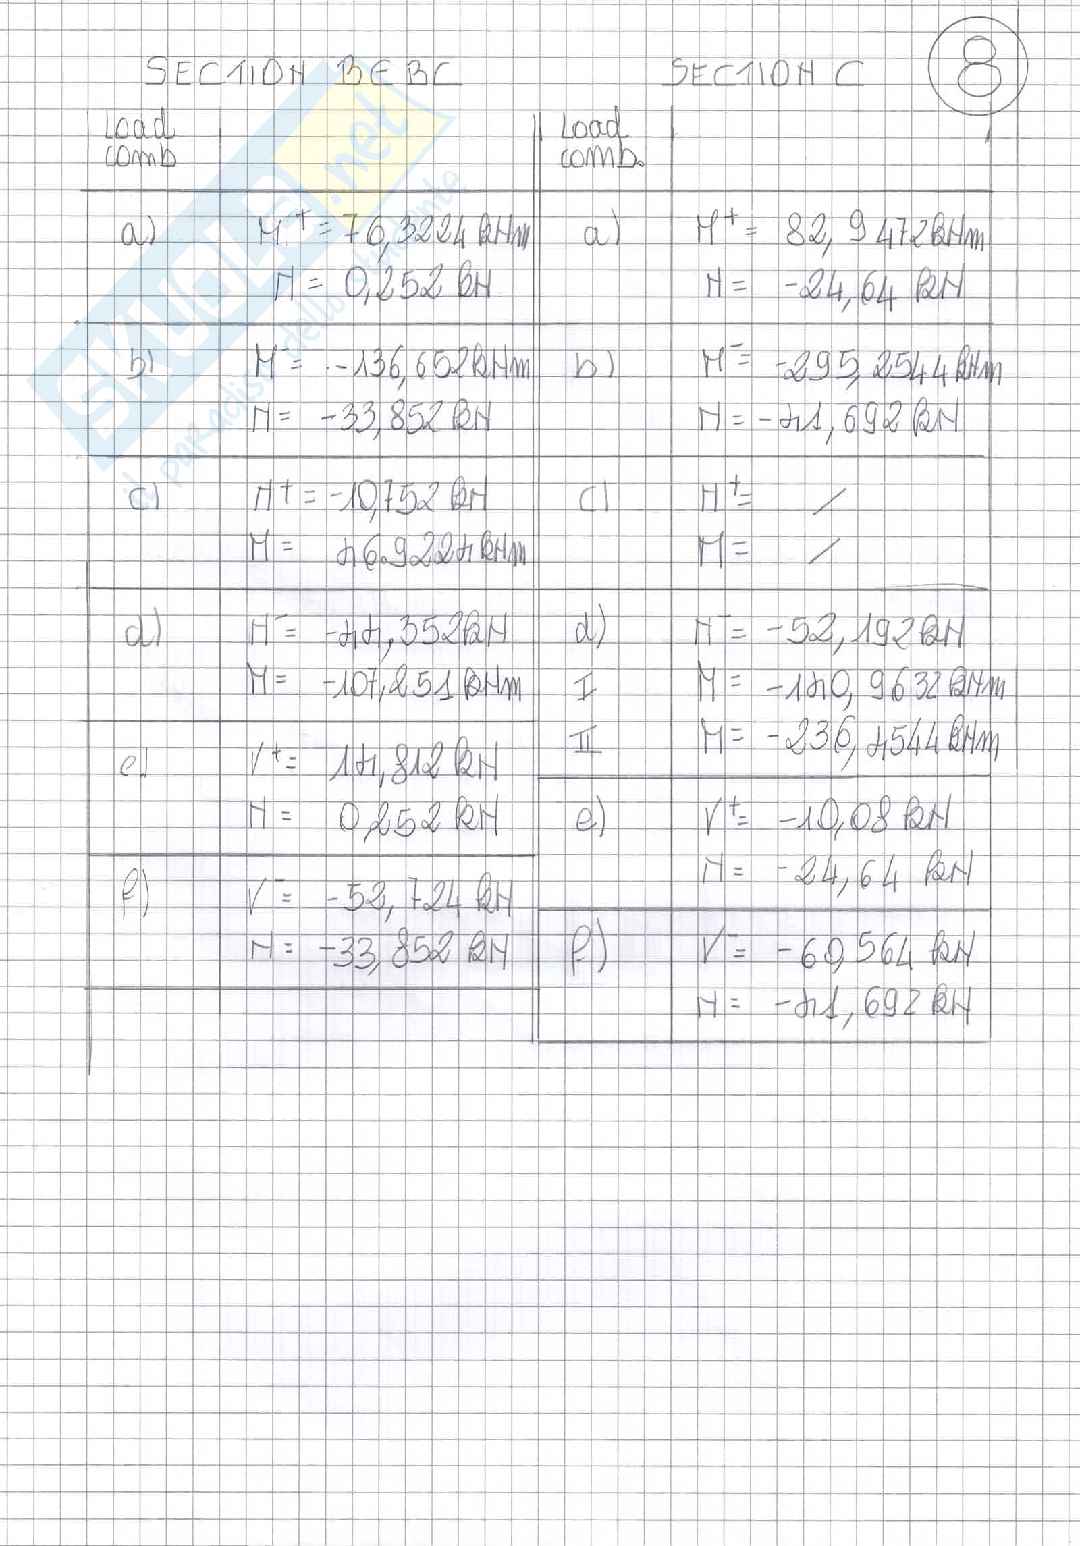 8
SECTION B∈BC
Load
comb
a) M⁺ = 76,3224 kNm
N = 0,252 kN
b) M⁻ = -136,652 kNm
N = -33,852 kN
c) N⁺ = -10,752 kN
M = 46.9224 kNm
d) N⁻ = -44,352 kN
M = -107,251 kNm
e) V⁺ = 14,812 kN
N = 0,252 kN
f) V⁻ = -52,724 kN
N = -33,852 kN
SECTION C
Load
comb.
a) M⁺ = 82,9472 kNm
N = -24,64 kN
b) M⁻ = -295,2544 kNm
N = -41,692 kN
c) N⁺ = /
M = /
d) N⁻ = -52,192 kN
I M = -140,9632 kNm
II M = -236,4544 kNm
e) V⁺ = -10,08 kN
N = -24,64 kN
f) V⁻ = -60,564 kN
N = -41,692 kN
SKUOLA.net
il paradiso dello studente